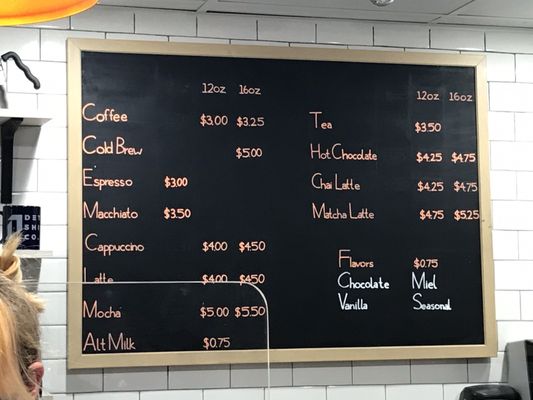 12oz 16oz
Coffee $3.00 $3.25
Cold Brew $5.00
Espresso $3.00
Macchiato $3.50
Cappuccino $4.00 $4.50
Latte $4.00 $4.50
Mocha $5.00 $5.50
Alt Milk $0.75
12oz 16oz
Tea $3.50
Hot Chocolate $4.25 $4.75
Chai Latte $4.25 $4.75
Matcha Latte $4.75 $5.25
Flavors $0.75
Chocolate Miel
Vanilla Seasonal